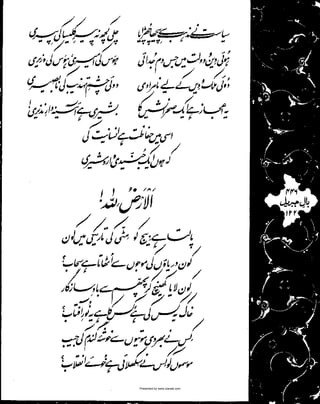 سیاست نے مذہب سے پیچھا چھڑایا چلی کچھ نہ پیرِ کلیسا کی پیری
ہوئی دین و دولت میں جس دم جدائی ہوس کی امیری، ہوس کی وزیری
دوئی ملک و دیں کے لیے نامرادی دوئی چشمِ تہذیب کی نابصیری
یہ اعجاز ہے ایک صحرا نشیں کا بشیری ہے آئینہ دارِ نذیری!
اسی میں حفاظت ہے انسانیت کی
کہ ہوں ایک جنیدی و اردشیری
الارضُ للہ!
پالتا ہے بیج کو مٹی کی تاریکی میں کون
کون دریاؤں کی موجوں سے اٹھاتا ہے سحاب؟
کون لایا کھینچ کر پچھم سے بادِ سازگار
خاک یہ کس کی ہے؟ کس کا ہے یہ نورِ آفتاب؟
کس نے بھر دی موتیوں سے خوشۂ گندم کی جیب
موسموں کو کس نے سکھلائی ہے خوئے انقلاب؟
۴۴۶
بالِ جبریل
۱۲۲
Presented by www.ziaraat.com